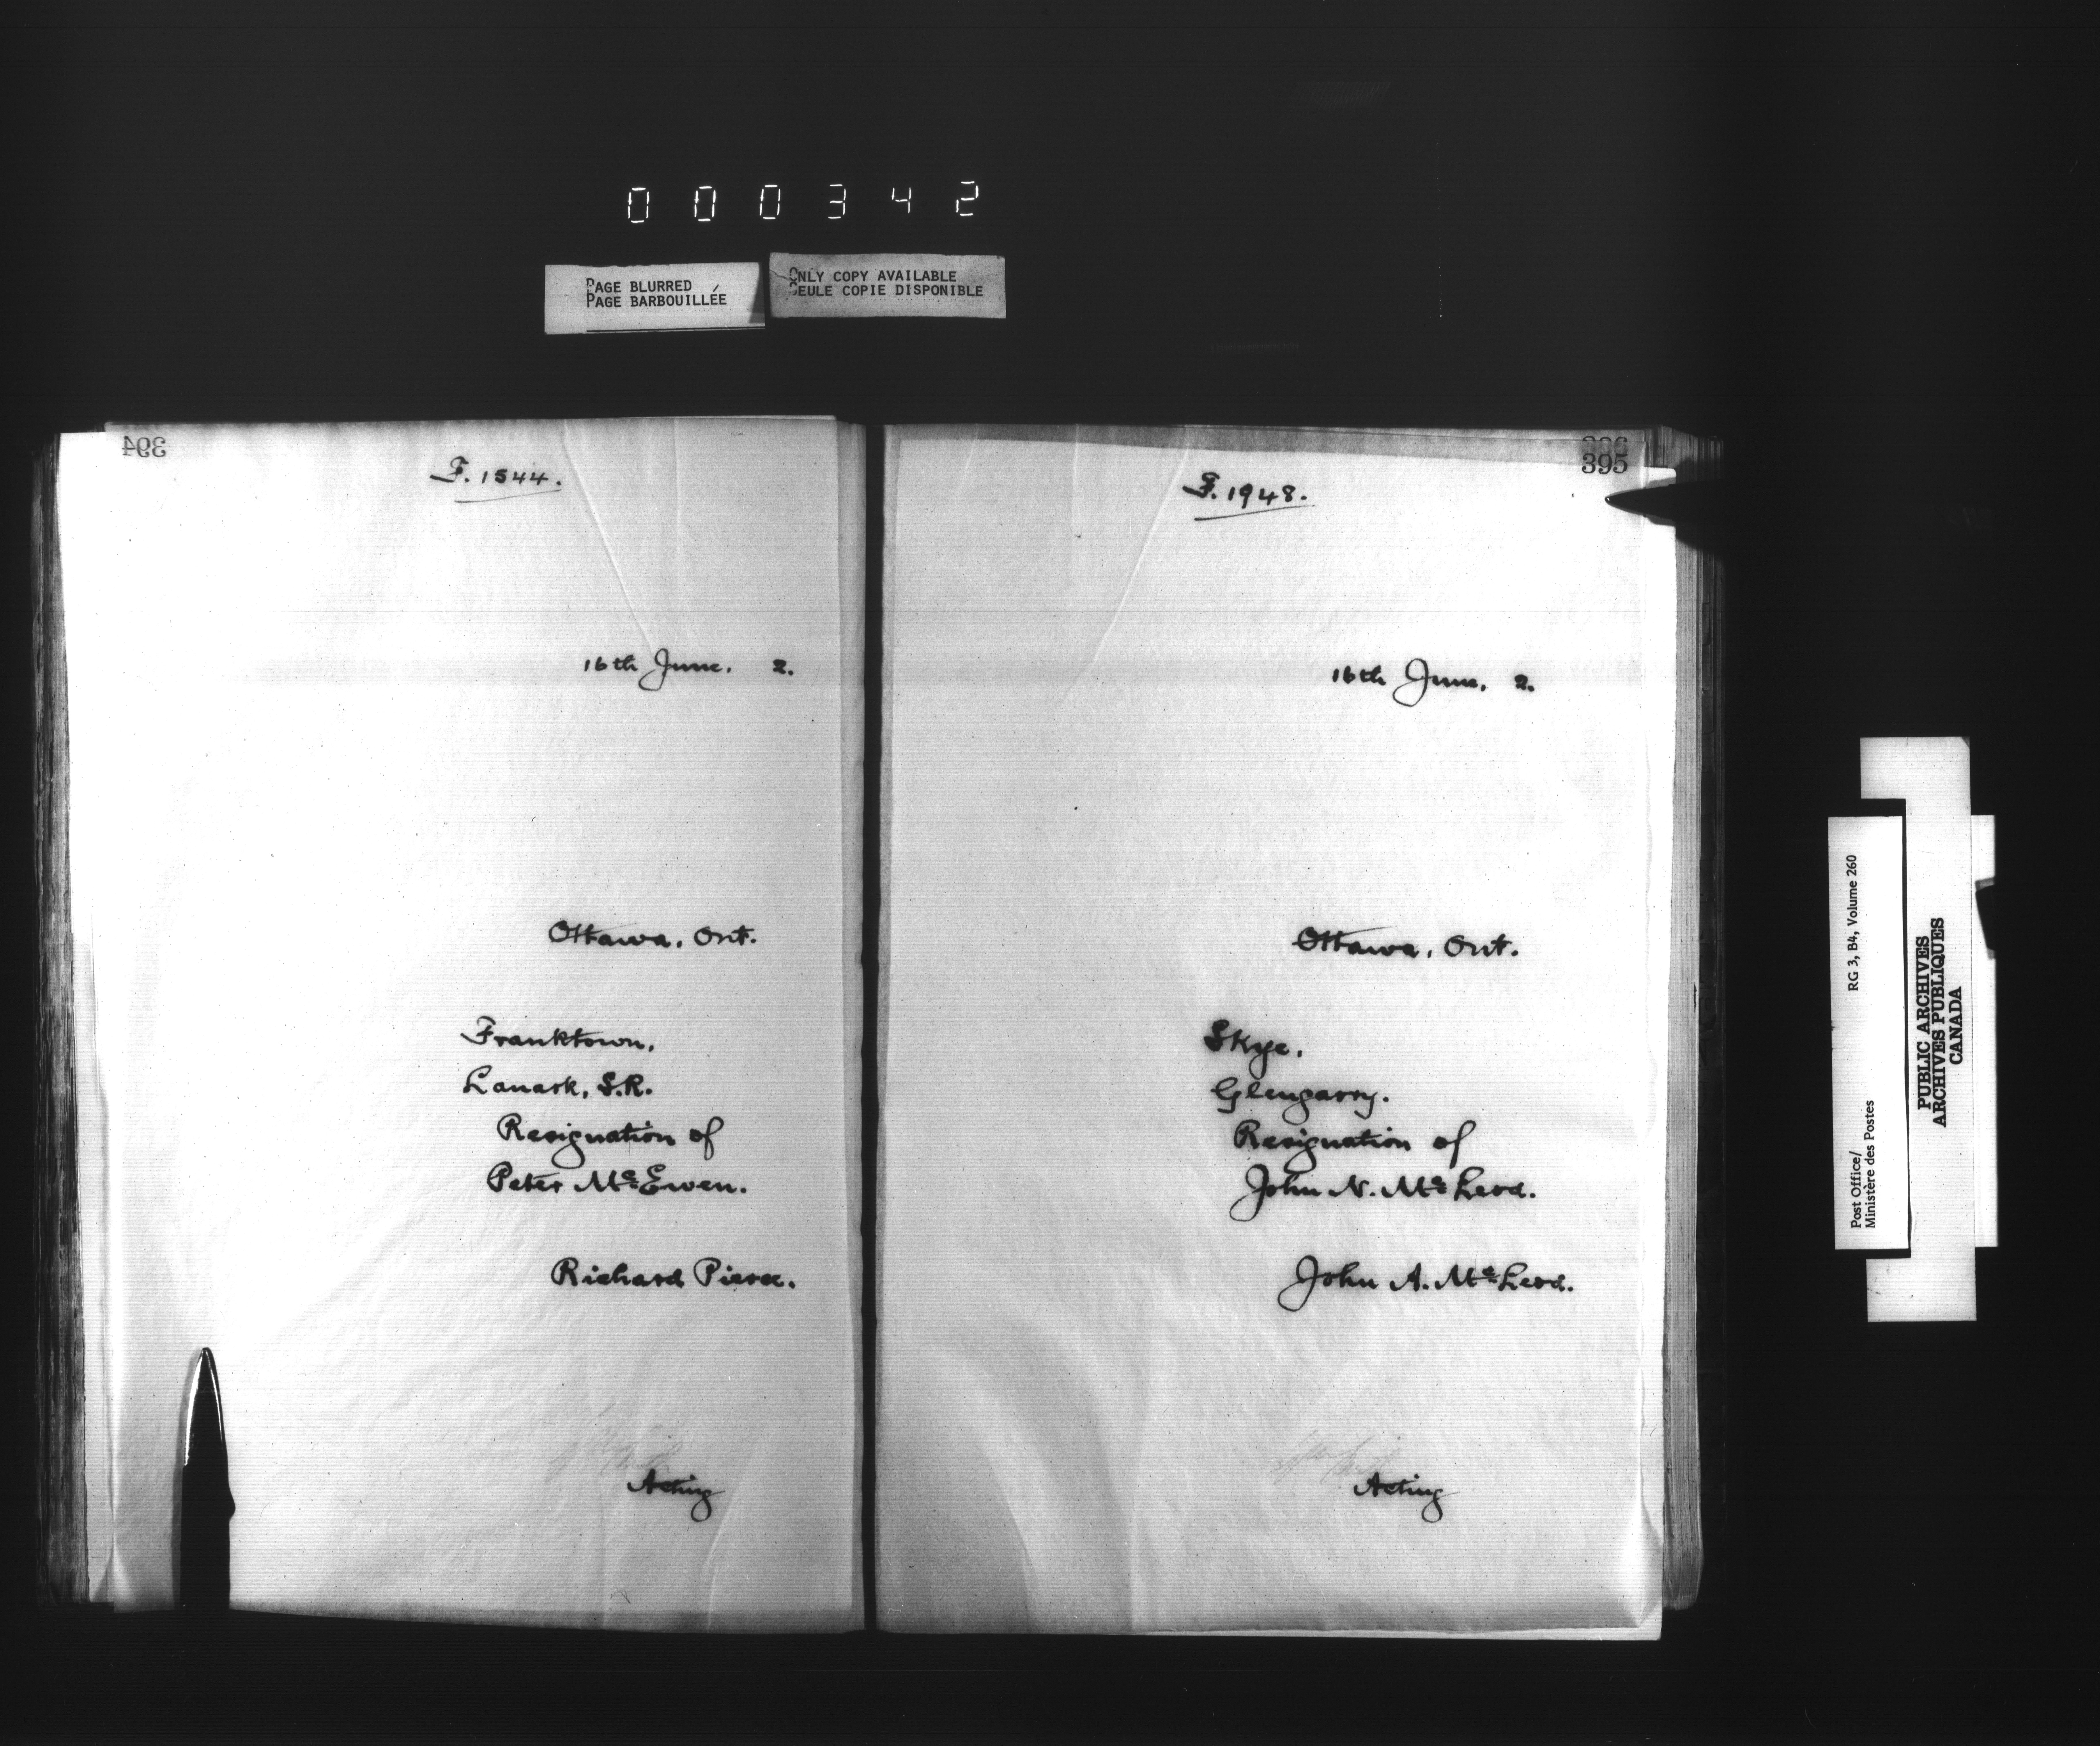 000342
PAGE BLURRED
PAGE BARBOUILLÉE
ONLY COPY AVAILABLE
SEULE COPIE DISPONIBLE
394
F. 1544.
16th June. 2.
Ottawa, Ont.
Franktown.
Lanark, S.R.
Resignation of
Peter McEwen.
Richard Pierce.
Acting
396
395
F. 1948.
16th June, 2.
Ottawa, Ont.
Skye.
Glengarry.
Resignation of
John N. McLeod.
John A. McLeod.
Acting
Post Office/
Ministère des Postes
RG 3, B4, Volume 260
PUBLIC ARCHIVES
ARCHIVES PUBLIQUES
CANADA